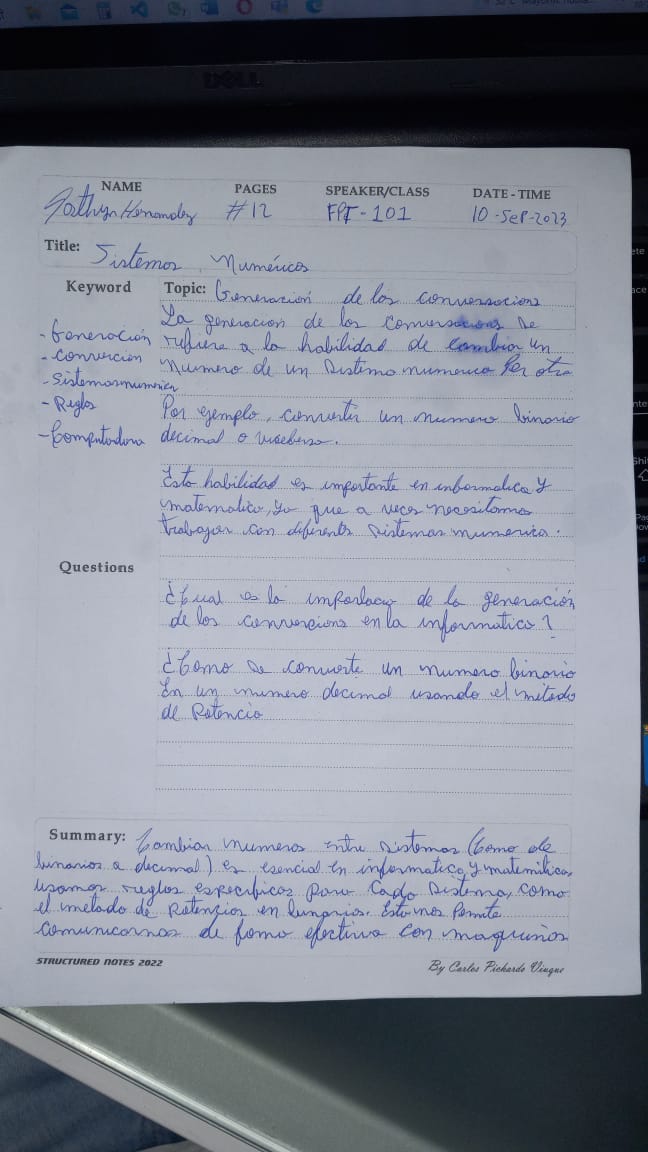 DELL
NAME PAGES SPEAKER/CLASS DATE - TIME
Hernandez #12 FPT-101 10-SeP-2023
Title: Sistemas Numéricos
Keyword
- Generación
- convercion
- sistemas numerica
- Reglas
- Computadora
Topic: Generación de los conversacions
La generacion de los conversacions se
refiere a la habilidad de cambiar un
numero de un sistema numerico Per otra
Por ejemplo, convertir un numero binario
decimal o viseberso.
Esta habilidad es importante en informatica y
matematica, ya que a veces necesitamos
trabajar con diferents sistemas numerico.
Questions
¿Cual es la importacio de la generación
de los converciones en la informatica?
¿Como se convierte un numero binario
En un numero decimal usando el metodo
de Potencia
Summary: Cambiar numeros entre sistemas (Como de
binarios a decimal) es esencial en informatica y matemática,
usamos reglas especificas para Cada sistema, como
el metodo de Potenzias en binarios. Esto nos Permite
Comunicarnos de forma efectiva con maquinas
STRUCTURED NOTES 2022 By Carlos Pichardo Viuque